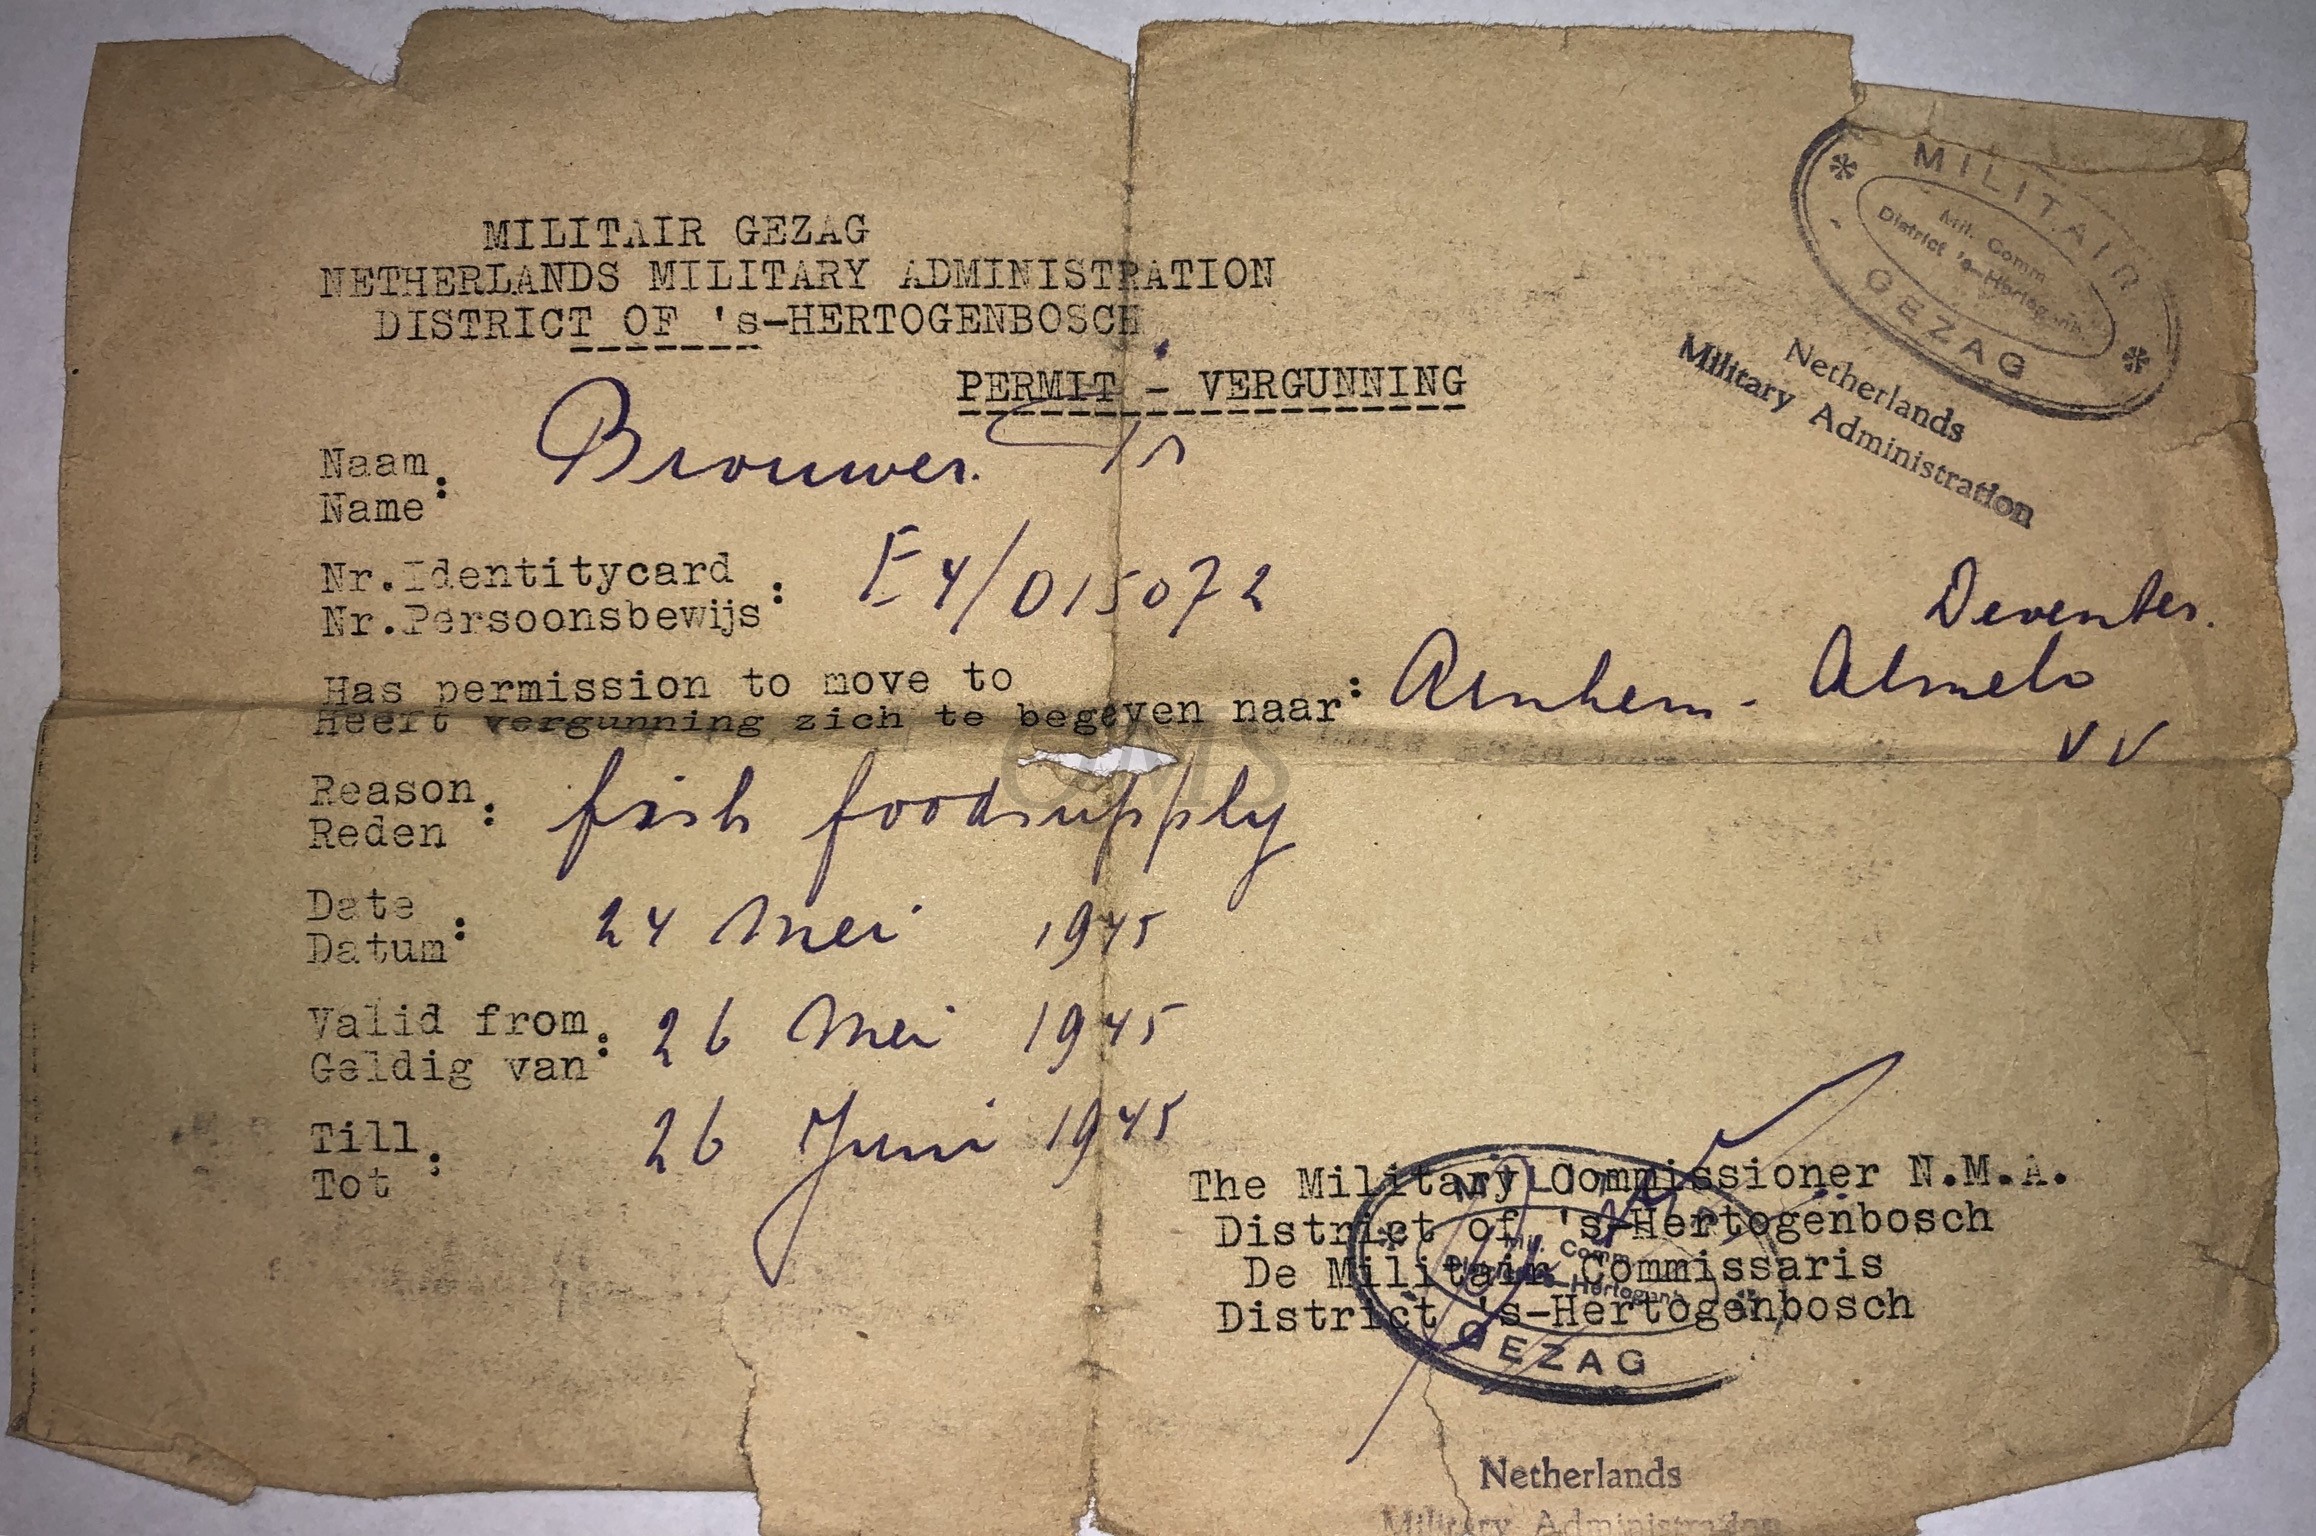 MILITAIR GEZAG
NETHERLANDS MILITARY ADMINISTRATION
DISTRICT OF 's-HERTOGENBOSCH
PERMIT - VERGUNNING
MILITAIR
Mil. Comm
District 's-Hertogenb.
GEZAG
Netherlands
Military Administration
Naam
Name : Brouwer.
Nr.Identitycard
Nr.Persoonsbewijs : E4/015072
Deventer.
Has permission to move to
Heeft vergunning zich te begeven naar : Arnhem - Almelo
VV
Reason
Reden : fish foodsupply
Date
Datum : 24 Mei 1945
Valid from
Geldig van : 26 Mei 1945
Till
Tot : 26 Juni 1945
The Military Commissioner N.M.A.
District of 's-Hertogenbosch
De Militair Commissaris
District 's-Hertogenbosch
GEZAG
Netherlands
Military Administration
OMS